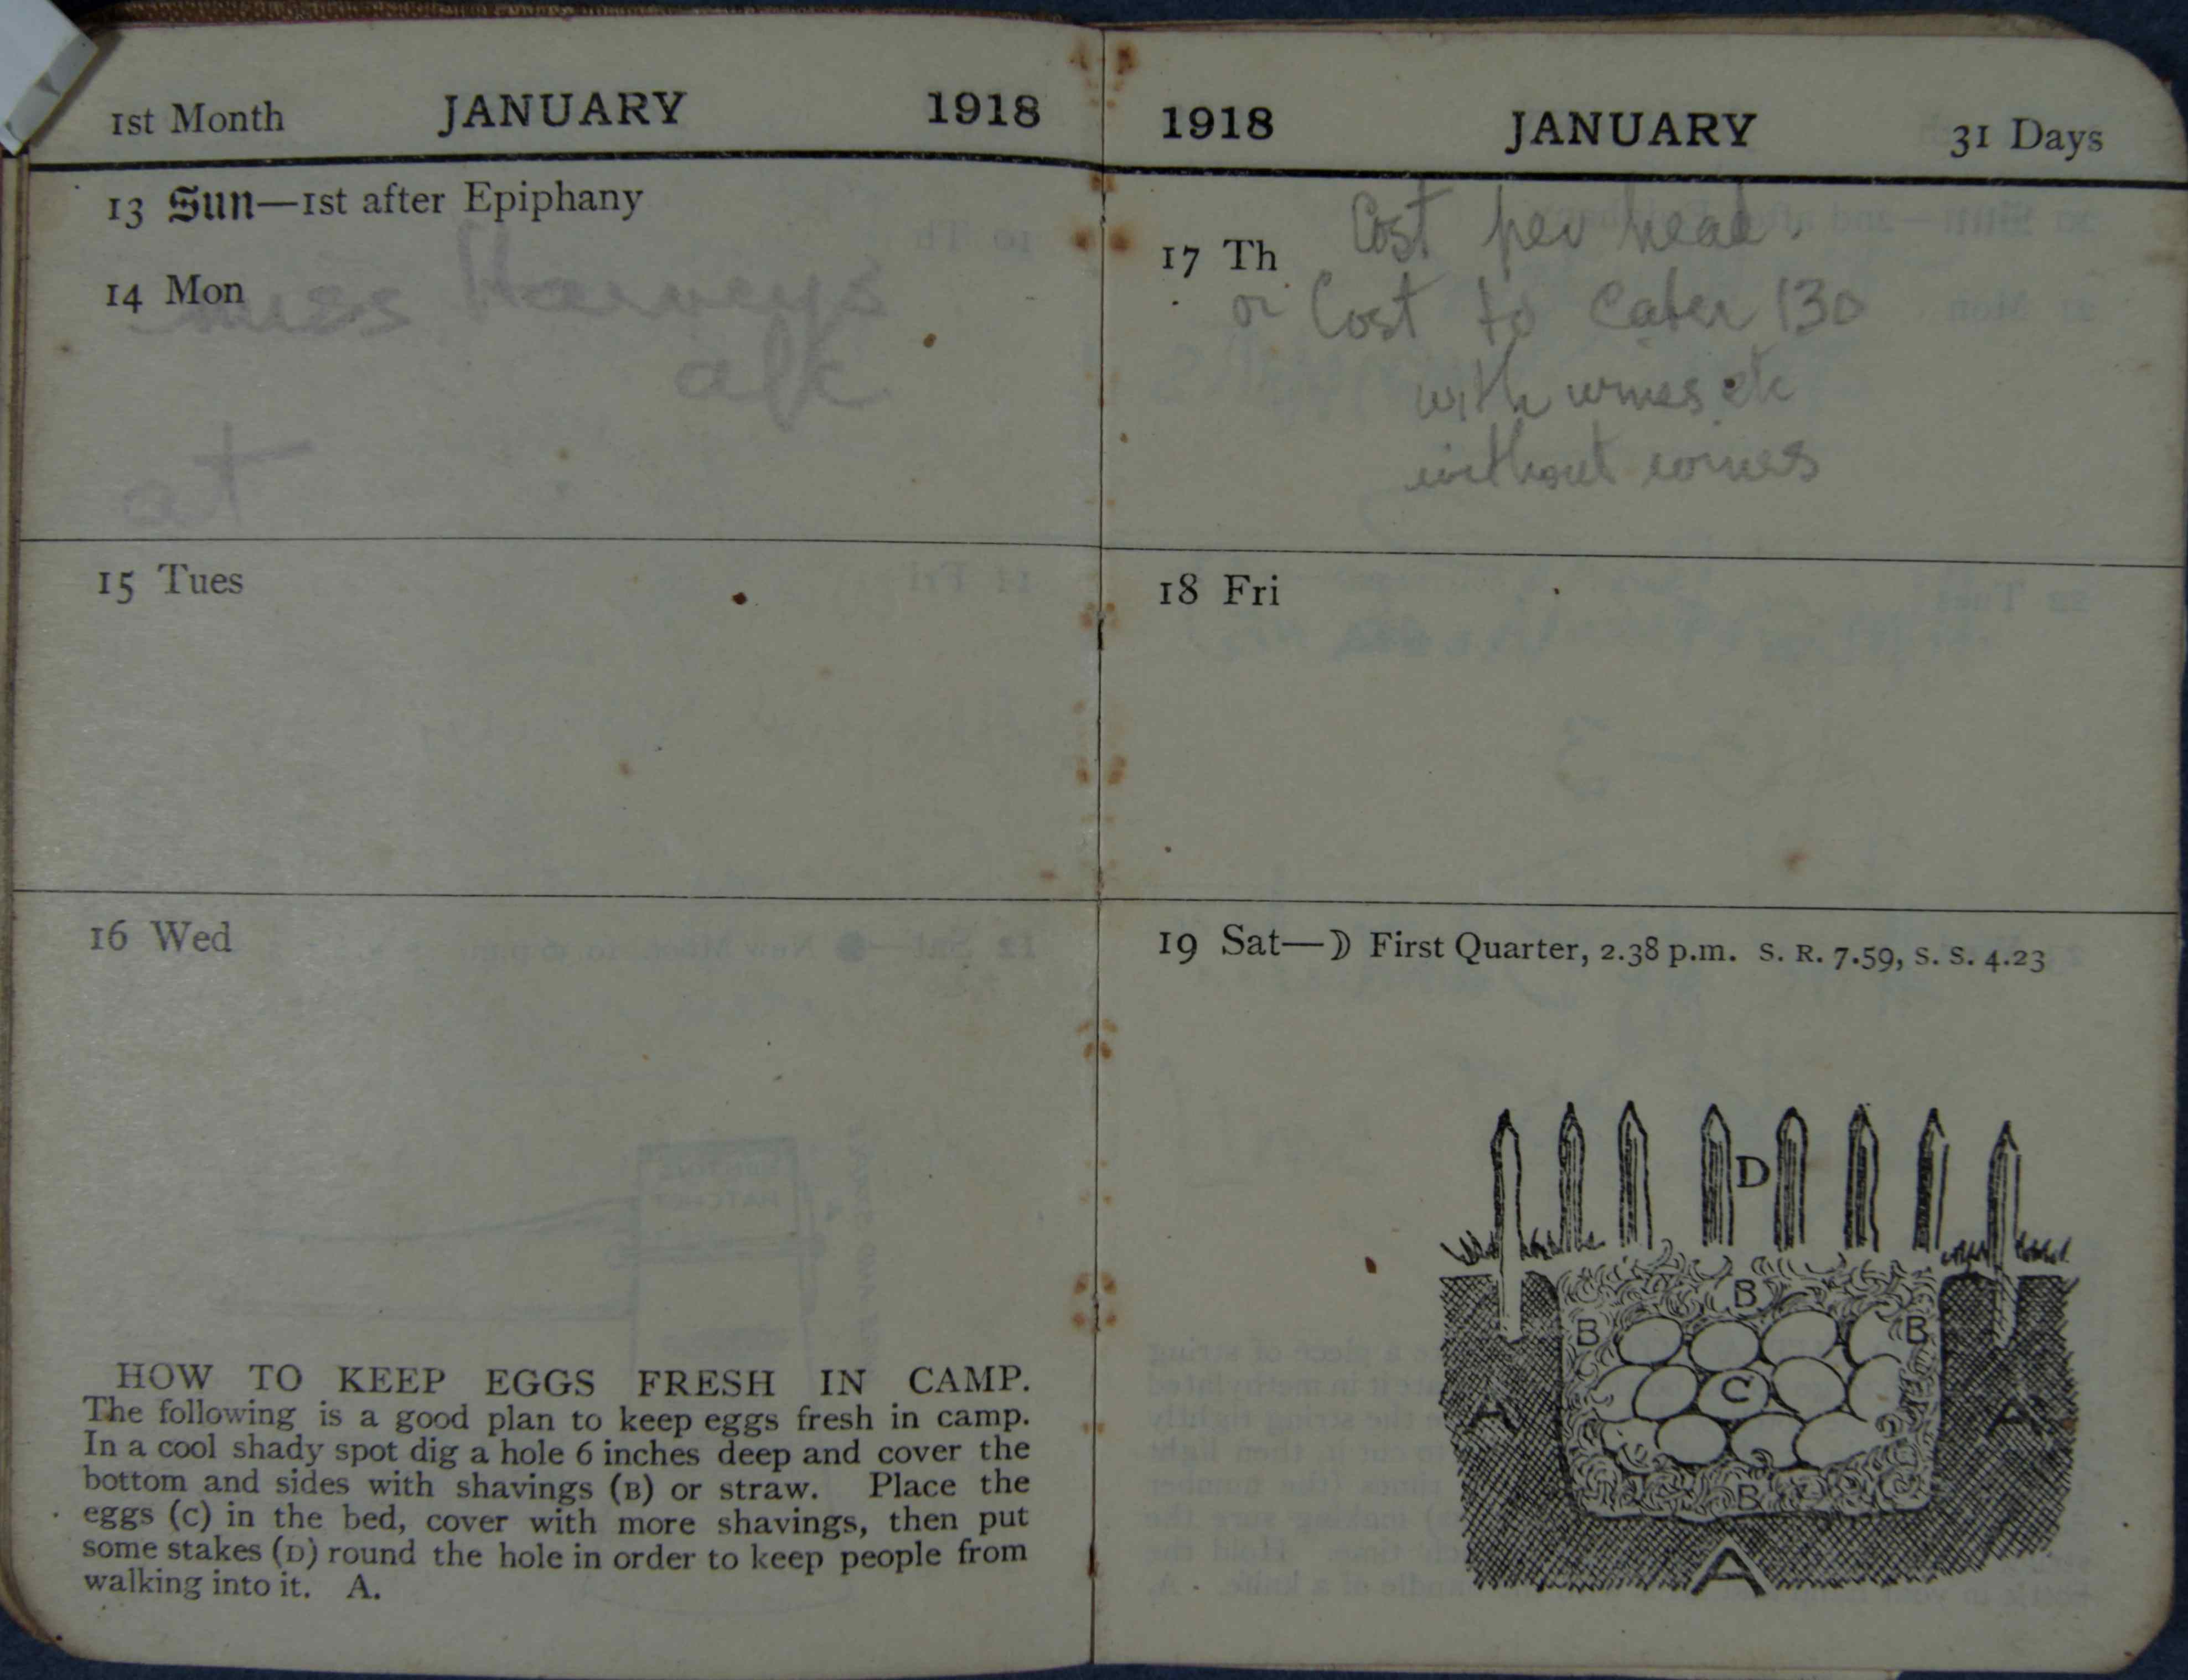 1st Month JANUARY 1918
13 Sun—1st after Epiphany
14 Mon
Miss Harveys
a/c
at
15 Tues
16 Wed
HOW TO KEEP EGGS FRESH IN CAMP.
The following is a good plan to keep eggs fresh in camp.
In a cool shady spot dig a hole 6 inches deep and cover the
bottom and sides with shavings (B) or straw. Place the
eggs (C) in the bed, cover with more shavings, then put
some stakes (D) round the hole in order to keep people from
walking into it. A.
1918 JANUARY 31 Days
Cost per head.
17 Th
or Cost to cater 130
with wines etc
without wines
18 Fri
19 Sat—☽ First Quarter, 2.38 p.m. S. R. 7.59, S. S. 4.23
D
B
B B
C
A A
B
A